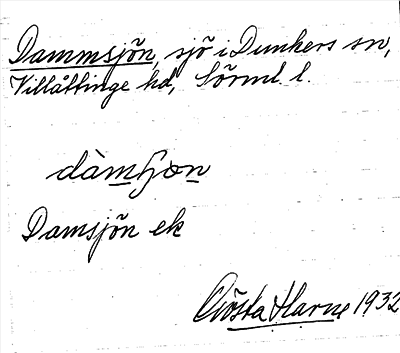 Dammsjön, sjö i Dunkers sn,
Villåttinge hd, Sörml. l.
dàmʃön
Damsjön ek
Gösta Harne 1932